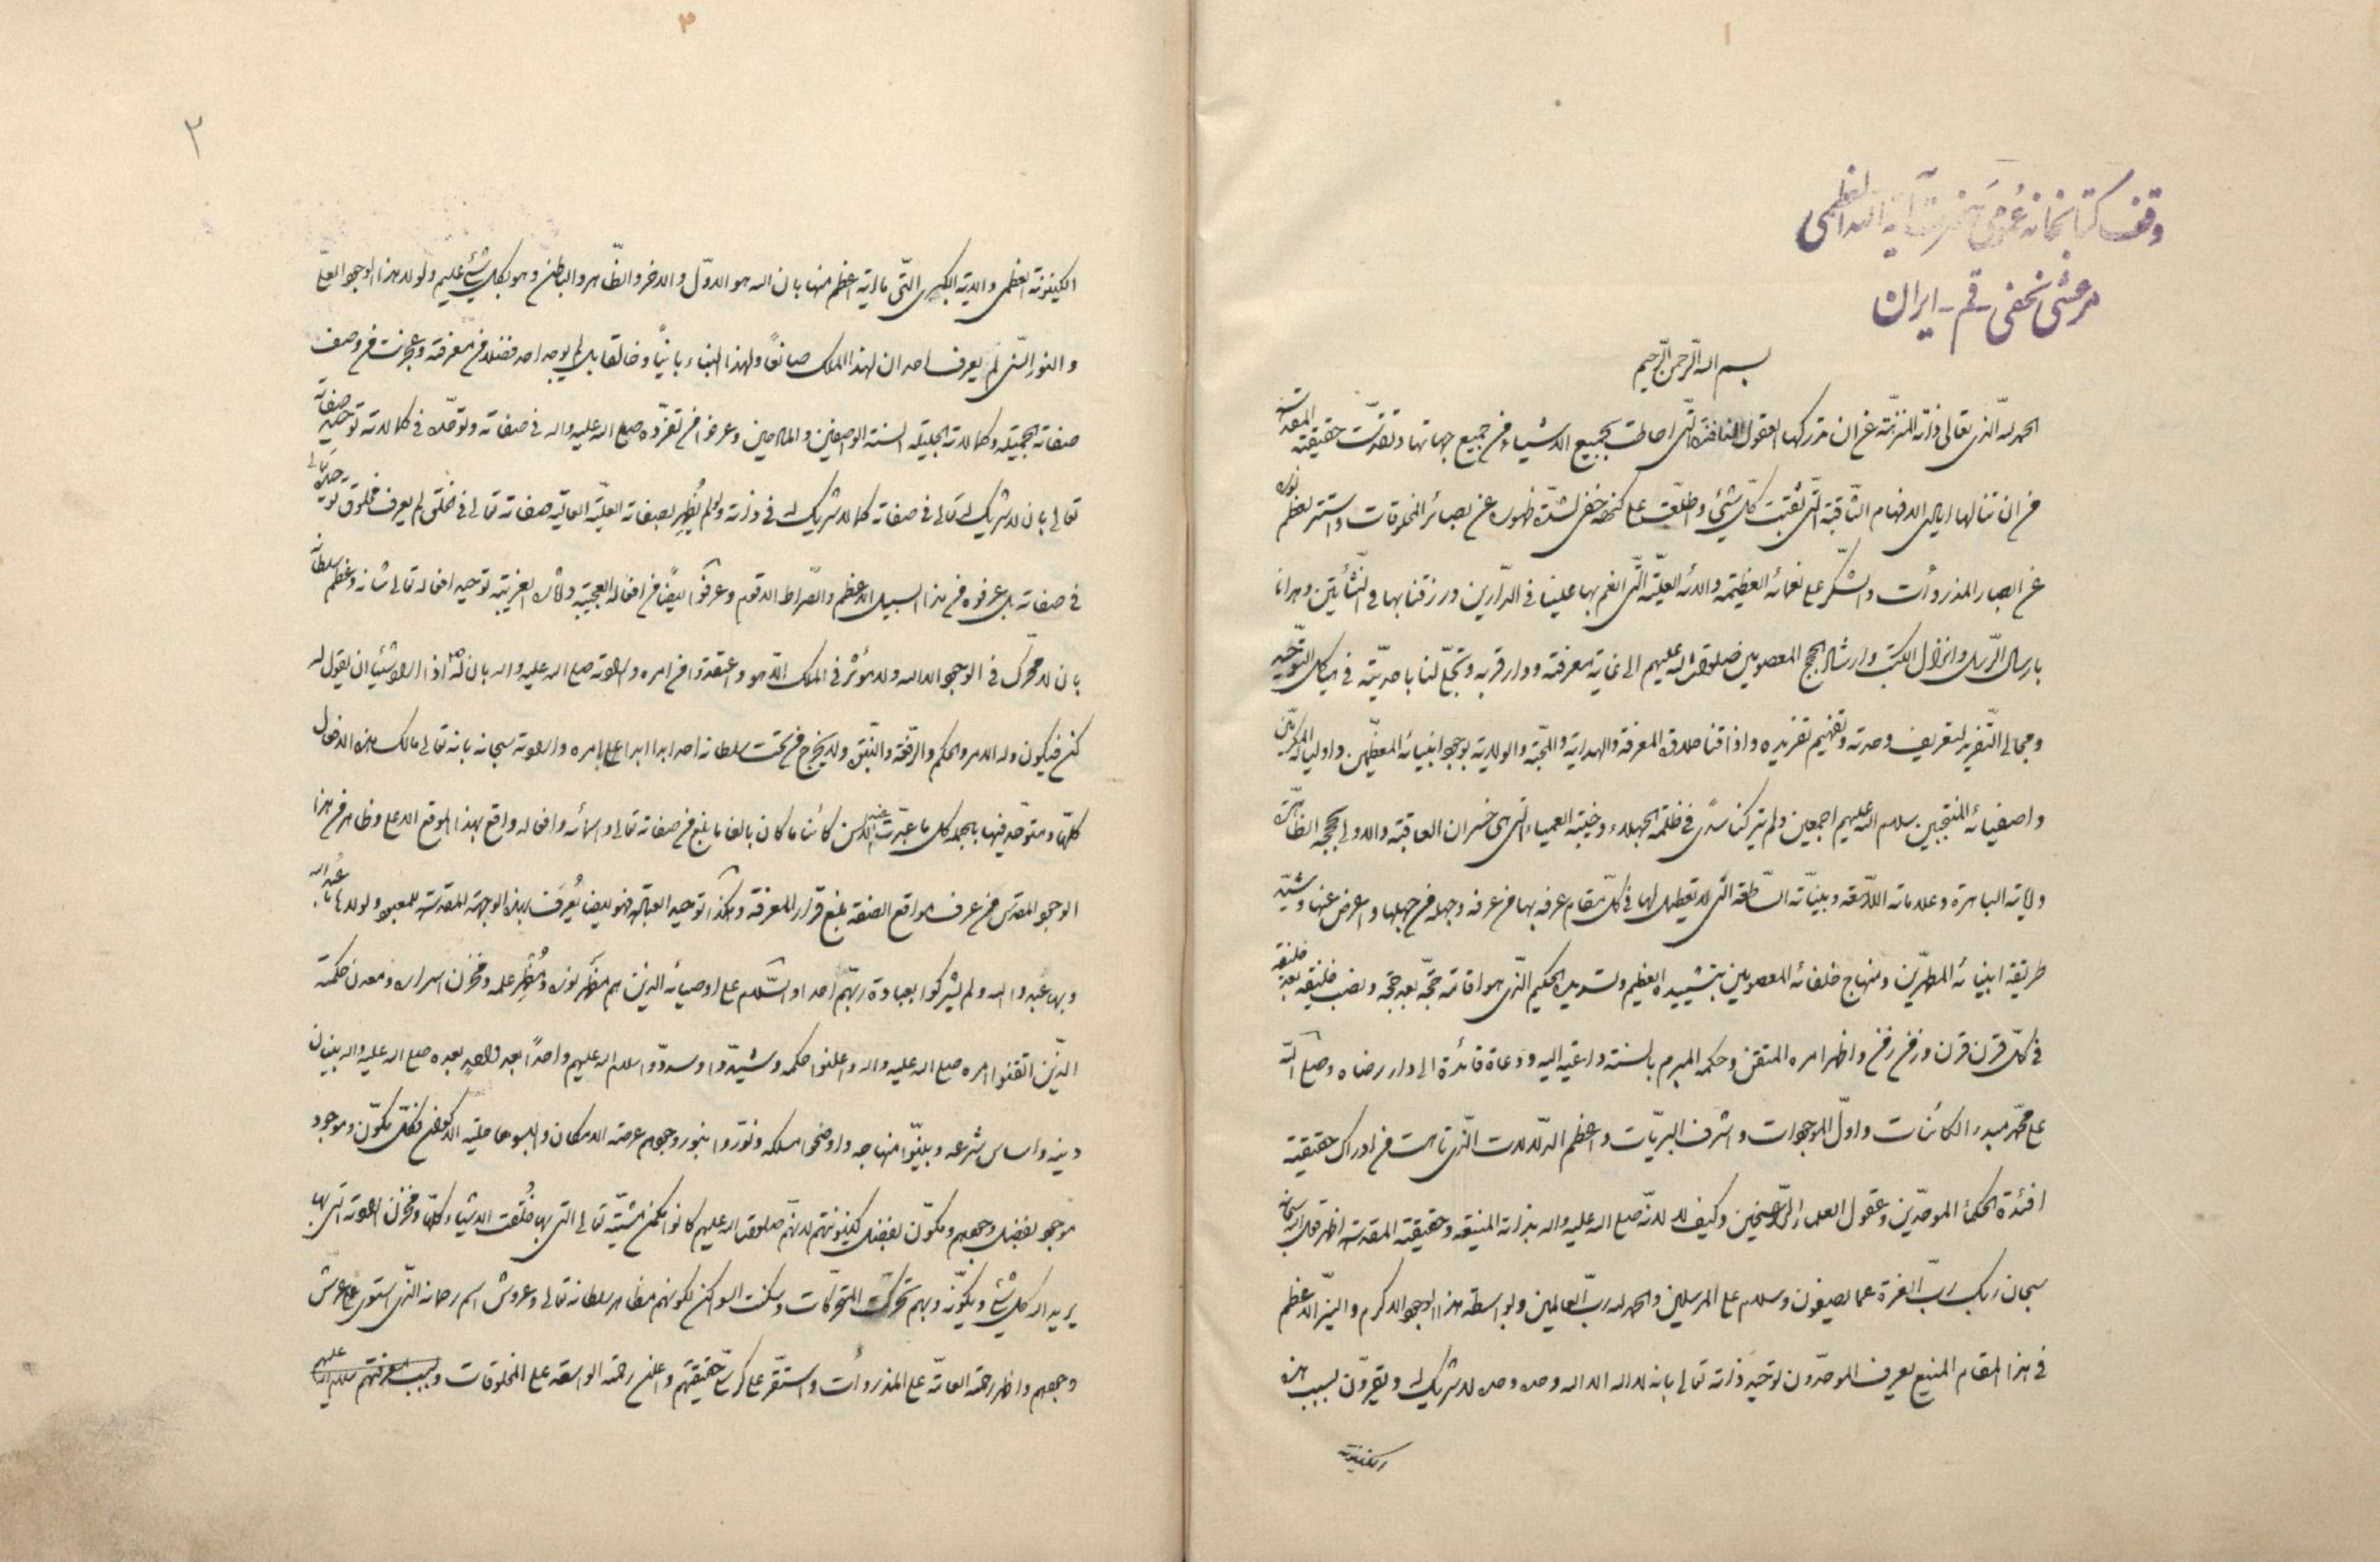 وقف کتابخانه عمومی حضرت آیة الله العظمی
مرعشی نجفی - قم - ایران
بسم الله الرحمن الرحیم
الحمد لله الذی تعالی ذاته المنزهة عن ان تدرکها العقول النافذة التی احاطت بجمیع الاشیاء من جمیع جهاتها و تقدست حقیقته المقدسة
من ان تنالها ایادی الافهام الثاقبة التی ثقبت کل شیئ و اطلعت علی کنهه خفی لشدة ظهوره عن بصائر المخلوقات و استتر لعظم نوره
عن ابصار المذروأت و الشکر علی نعمائه العظیمة و الائه العلیة التی انعم بها علینا فی الدارین و رزقنا بها فی النشأتین و هدانا
بارسال الرسل و انزال الکتب و ارشاد الحجج المعصومین صلوات الله علیهم الی غایة معرفته و دار قربه و تجلی لنا باحدیته فی هیاکل التوحید
و مجالی التفرید لتعریف وحدته و تفهیم تفریده و اذاقنا حلاوة المعرفة و الهدایة و المحبة و الولایة بوجود انبیائه المعظمین و اولیائه المکرمین
و اصفیائه المنتجبین سلام الله علیهم اجمعین و لم یترکنا سدی فی ظلمة الجهلاء و خیبة العمیاء التی هی خسران العاقبة و الاولی بحججه الظاهرة
و ایاته الباهرة و علاماته اللامعة و بیناته الساطعة التی لا تعطیل لها فی کل مقام عرفه بها من عرفه و جهله من جهلها و اعرض عنها و شید
طریقة انبیائه المطهرین و منهاج خلفائه المعصومین بتشییده العظیم و تسدیده الحکیم الذی هو اقامة حجة بعد حجة و نصب خلیفة بعد خلیفة
فی کل قرن قرن و زمن زمن و اظهر امره المتقن و حکمه المبرم بالسنة داعیة الیه و دعاة قائدة الی دار رضاه و صلی الله
علی محمد مبدء الکائنات و اول الموجودات و اشرف البریات و اعظم الدلالات الذی تاهت فی ادراک حقیقته
افئدة الحکمأ الموحدین و عقول العلماء الراسخین و کیف لا لانه صلی الله علیه و اله بذاته المنیعة و حقیقته المقدسة اظهر قول الله سبحانه
سبحان ربک رب العزة عما یصفون و سلام علی المرسلین و الحمد لله رب العالمین و بواسطة هذا الوجود الاکرم و النیر الاعظم
فی هذا المقام المنیع یعرف الموحدون توحید ذاته تعالی بانه لا اله الا الله وحده وحده لا شریک له و یقرون بسبب هذه
الکینونة
۲
الکینونة العظمی و الایة الکبری التی ما ایة اعظم منها بان الله هو الاول و الاخر و الظاهر و الباطن و هو بکل شیئ علیم و لولا هذا الوجود العلی
و النور السنی لم یعرف احد ان لهذا الملک صانعا و لهذا البناء بانیا و خالقا بل لم یوجد احد فضلا من معرفته و عجزت فی وصف
صفاته الجمیلة و کمالاته الجلیلة السنة الواصفین و المادحین و عرفوا من تفرده صلی الله علیه و اله فی صفاته و توحده فی کمالاته توحید صفاته
تعالی بان لا شریک له تعالی فی صفاته کما لا شریک له فی ذاته و لو لم یظهر بصفاته العلیة العالیة صفاته تعالی فی خلقه لم یعرف مخلوق توحده تعالی
فی صفاته بل عرفوه من هذا السبیل الاعظم و الصراط الاقوم و عرفوا ایضا من افعاله العجیبة و اثاره الغریبة توحید افعاله تعالی شانه و عظم سلطانه
بان لا محرک فی الوجود الا الله و لا مؤثر فی الملک الا هو و اعتقدوا من امره و ارادته صلی الله علیه و اله بان له اذا اراد شیئا ان یقول له
کن فیکون و له الامر و الحکم و الرتق و الفتق و لا یخرج من تحت سلطانه احد ابدا ابدا علی امره و ارادته سبحانه بانه تعالی مالک هذه الافعال
کلها و متوحد فیها بالجملة کل ما عبرت عنه الالسن کائنا ما کان بالغا ما بلغ من صفاته تعالی و اسمائه و افعاله واقع بهذا الموقع الاعلی و ظاهر من هذا
الوجود المقدس فمن عرف مواقع الصفة بلغ قرار المعرفة و هکذا توحید العبادة فهو ایضا یعرف بهذه الوجهة المقدسة للمعبود و لولاها ما عبد الله
و بها عبدوا الله و لم یشرکوا بعبادة ربهم احدا و السلام علی اوصیائه الذین هم مظهر نوره و مظهر علمه و مخزن اسراره و معدن حکمته
الذین اتقنوا امره صلی الله علیه و اله و اعلنوا حکمه و شیدوا و سددوا سلام الله علیهم واحدا بعد واحد بعده صلی الله علیه و اله بنیان
دینه و اساس شرعه و بینوا منهاجه و اوضحوا مسلکه و نوروا بنور وجودهم عرصة الامکان و البسوها حلیة الاکوان فکل مکون و موجود
موجود بفضل وجودهم و مکون بفضل کینونتهم لانهم صلوات الله علیهم کانوا مکمن مشیته تعالی التی بها خلقت الاشیاء کلها و مخزن ارادته التی بها
یرید الله کل شیئ و یکونه و بهم تحرکت المتحرکات و سکنت السواکن لکونهم مظاهر سلطانه تعالی و عروش اسم رحمانه الذی استوی علی عرش
وجودهم و اظهر رحمته العامة علی المذروأت و استقر علی کرسی حقیقتهم و اعلن رحمته الواسعة علی المخلوقات و بسبب معرفتهم سلام الله علیهم